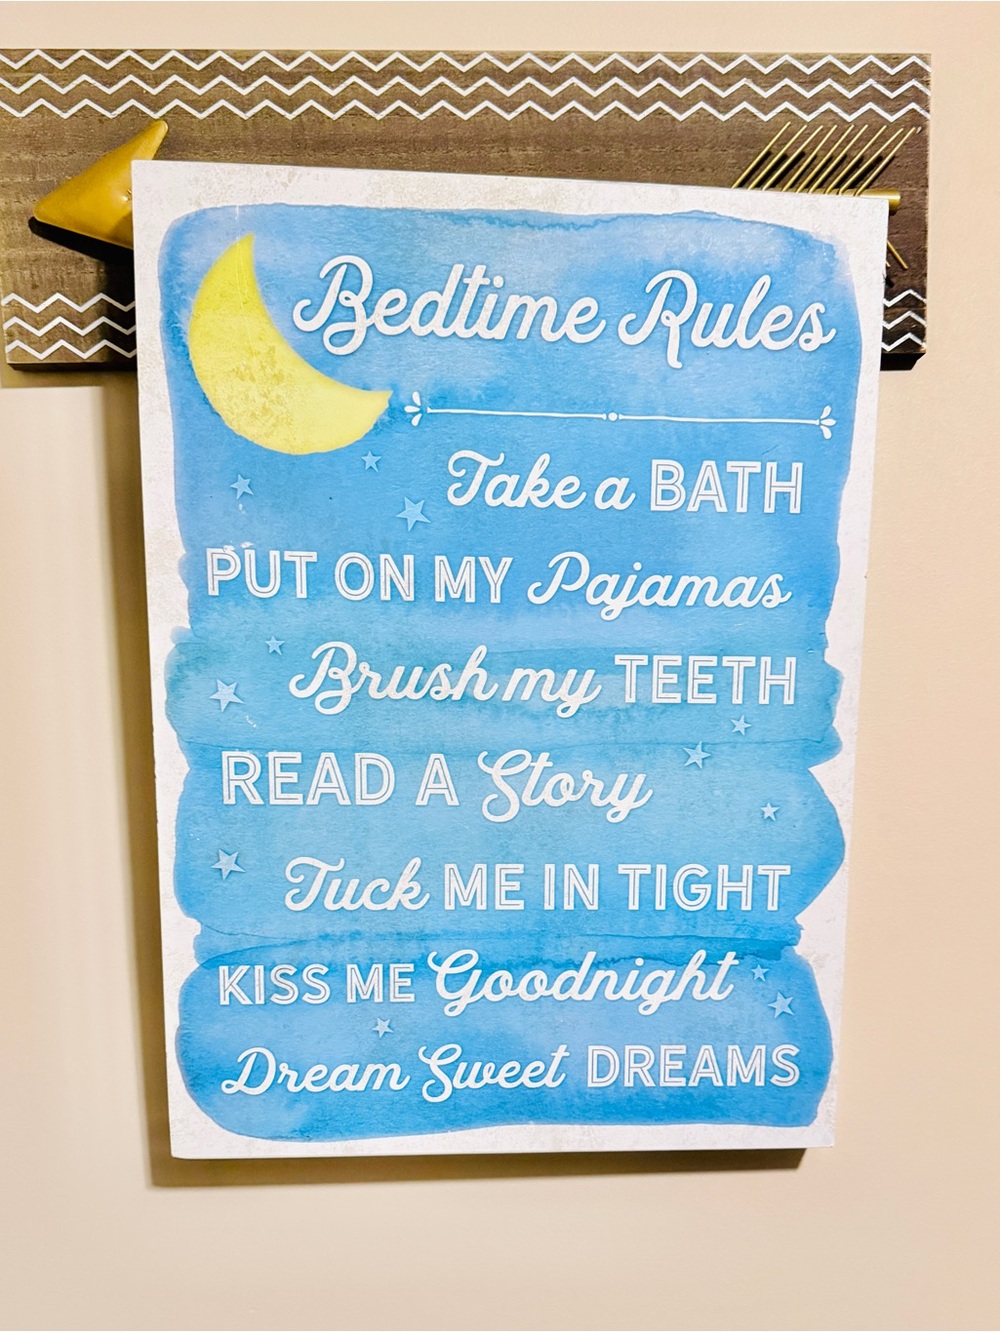 Bedtime Rules
Take a BATH
PUT ON MY Pajamas
Brush my TEETH
READ A Story
Tuck ME IN TIGHT
KISS ME Goodnight
Dream Sweet DREAMS